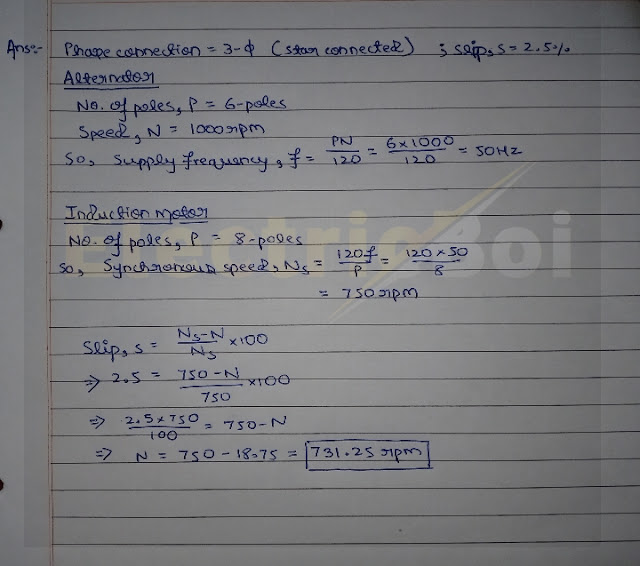 Ans:- Phase connection = 3-ϕ (star connected) ; slip, s = 2.5%
Alternator
No. of poles, P = 6-poles
Speed, N = 1000 rpm
So, supply frequency, f = PN/120 = 6×1000/120 = 50Hz
Induction motor
No. of poles, P = 8-poles
So, Synchronous speed, Ns = 120f/P = 120×50/8
= 750 rpm
Slip, s = Ns-N/Ns ×100
⇒ 2.5 = 750-N/750 ×100
⇒ 2.5×750/100 = 750-N
⇒ N = 750-18.75 = 731.25 rpm
ElectricBoi